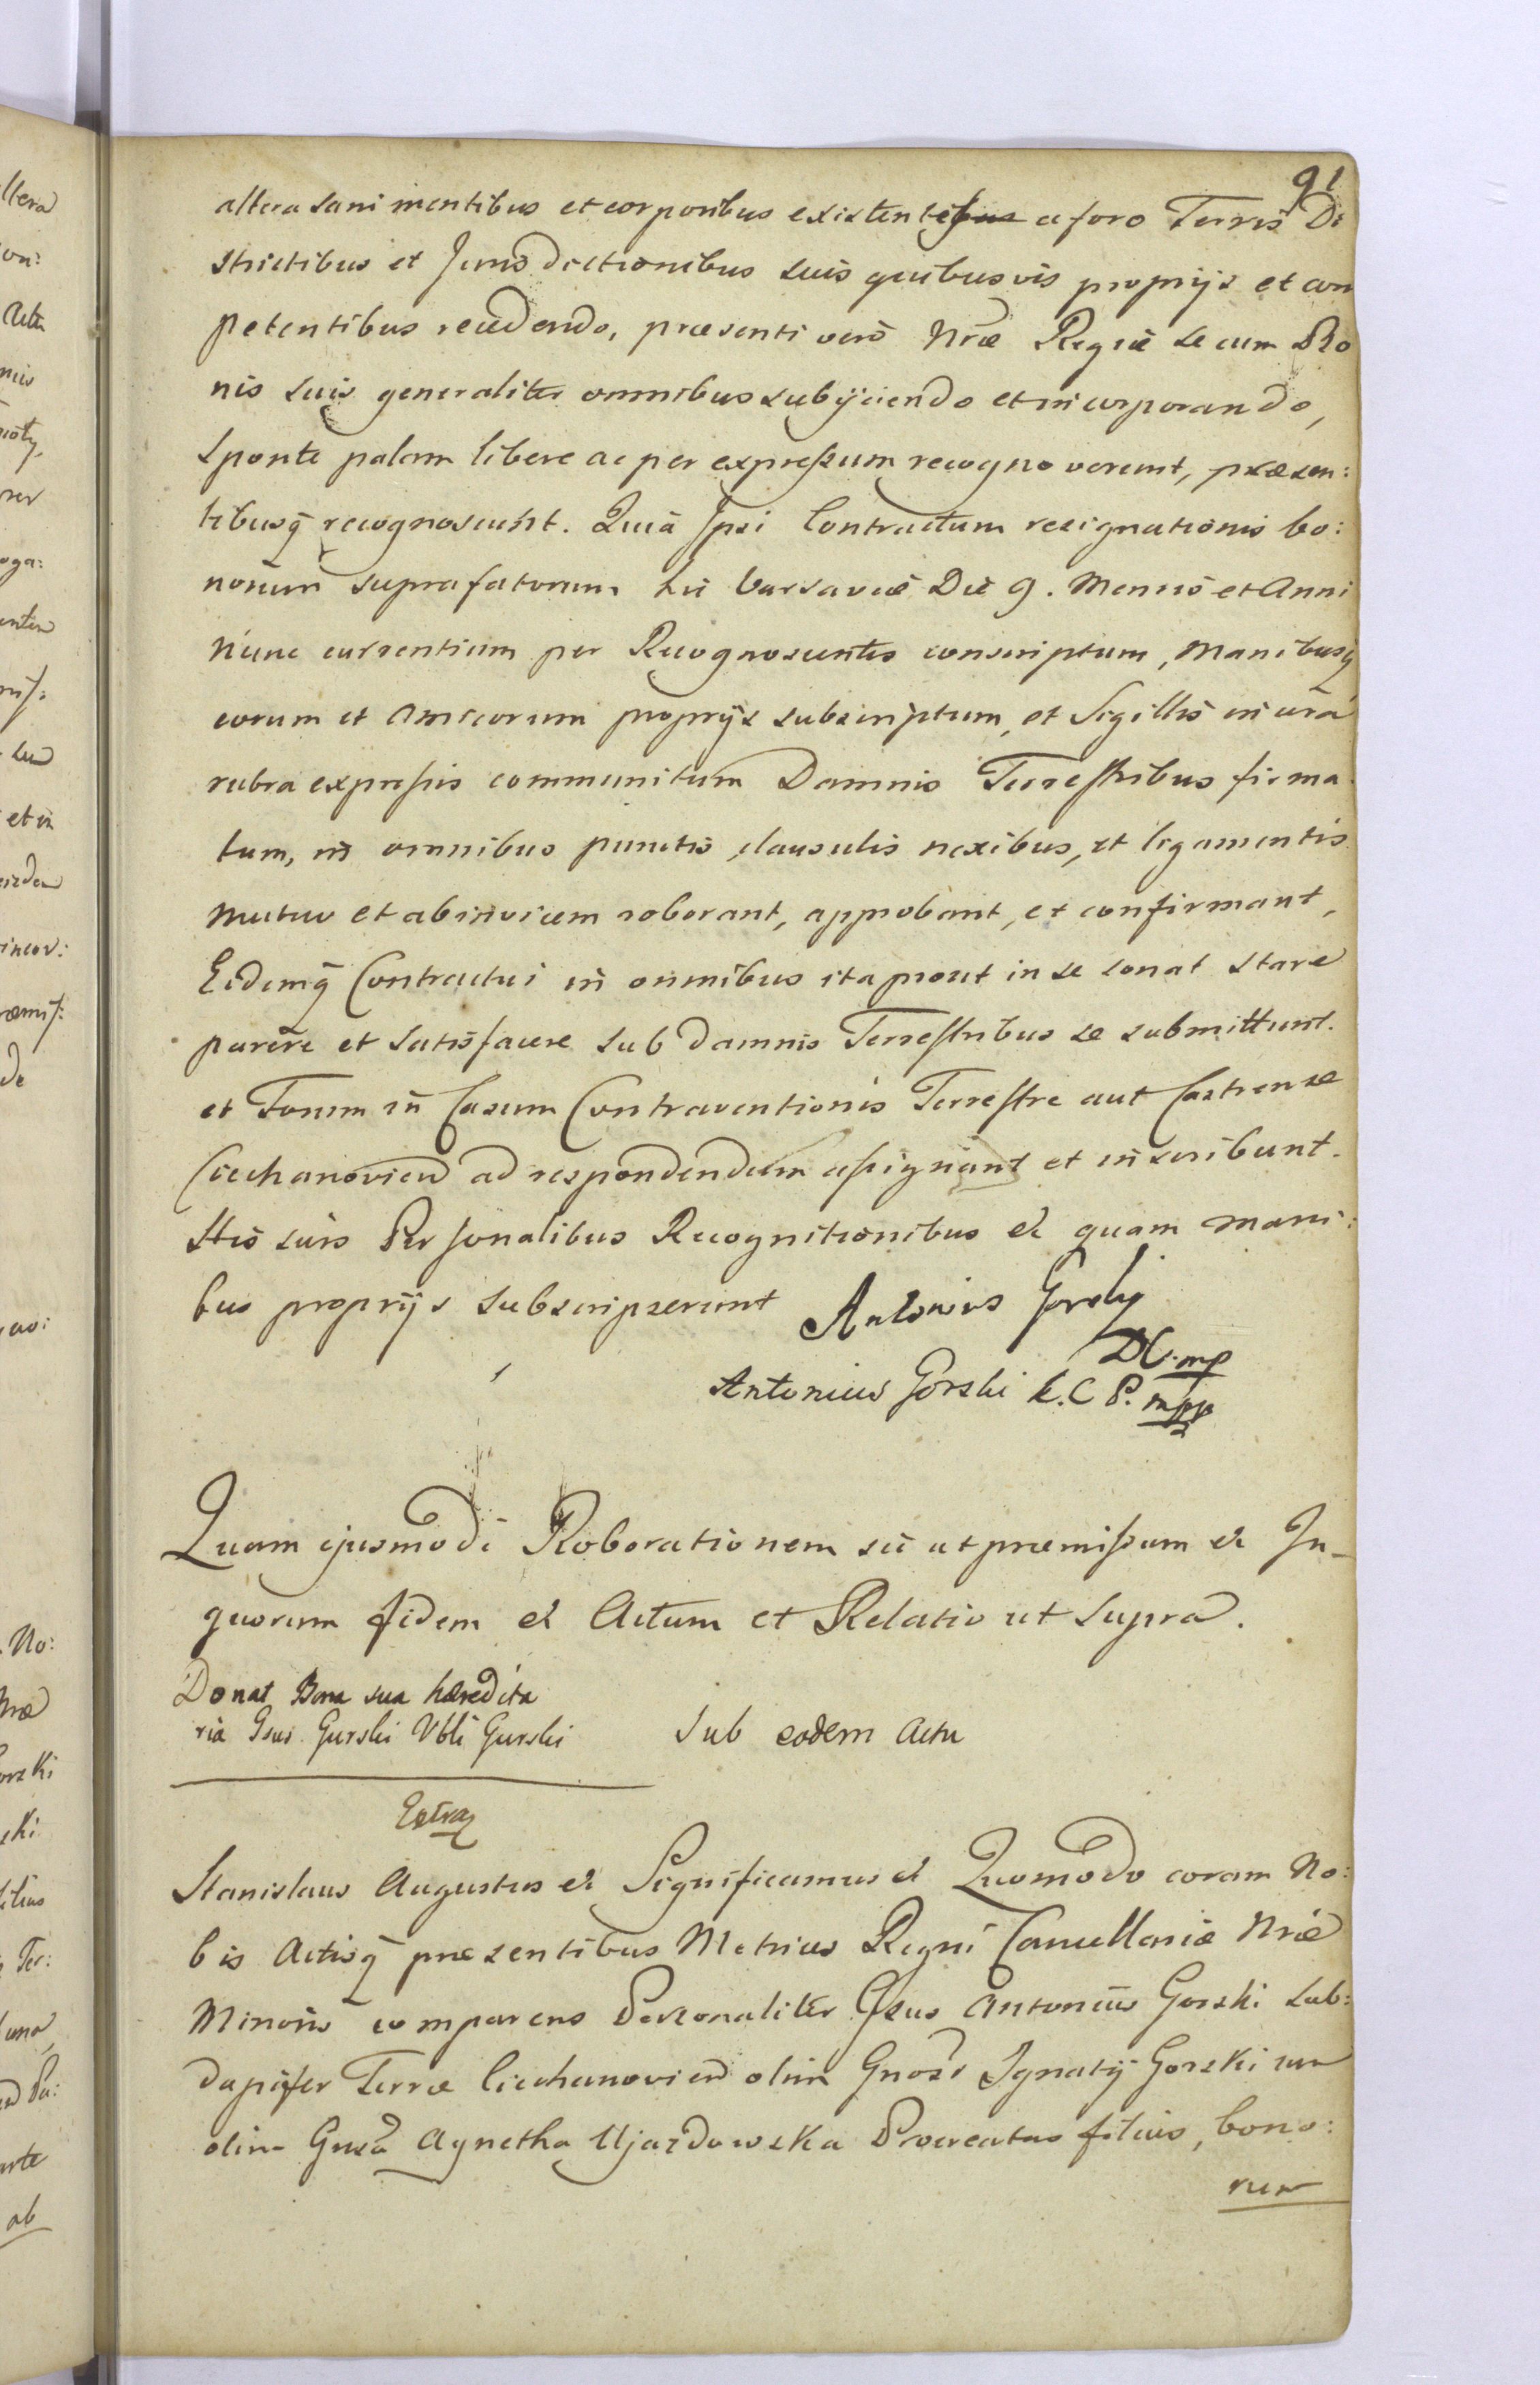 91
altera sani mentibus et corporibus existentes a foro Terris Di
strictibus et Jurisdictionibus suis quibusvis proprijs et com
petentibus recedendo, præsenti verò Nræ Regiæ se cum Bo
nis suis generaliter omnibus subijciendo et incorporando,
sponte palam libere ac per expreſsum recognoverunt, præsen:
tibusq̃ recognoscunt. Quia Ipsi Contractum resignationis bo:
norum suprafatorum hic Varsaviæ Die 9. Mensis et Anni
nunc currentium per Recognoscentes conscriptum, Manibusq̃
eorum et Amicorum proprijs subscriptum, et Sigillis in cera
rubra expreſsis communitum Damnis Terreſtribus firma
tum, in omnibus punctis clausulis nexibus, et ligamentis
mutuo et abinvicem roborant, approbant, et confirmant,
Eidemq̃ Contractui in omnibus ita prout in se sonat stare
parere et satisfacere sub Damnis Terreſtribus se submittunt.
et Forum in Casum Contraventionis Terreſtre aut Castrense
Ciechanovien ad respondendum aſsignant et inscribunt.
Stis suis Personalibus Recognitionibus &c quam mani:
bus proprijs subscripserunt Antonius Gorski
DC. mp
Antonius Gorski k. C P. mpp
Quam ejusmodi Roborationem sic ut præmiſsum &c In-
quorum fidem &c Actum et Relatio ut supra.
Donat Bona sua hæredita
ria Gsus Gurski Vbli Gurski
Sub eodem Actu
Extra
Stanislaus Augustus &c Significamus &c Quomodo coram No:
bis Actisq̃ præsentibus Metrices Regni Cancellariæ Nræ
Minoris comparens Personaliter Gsus Antonius Gorski Sub:
dapifer Terræ Ciechanovien olim Gnosi Ignatij Gorski cum
olim Gnsa Agnetha Ujazdowska Procreatus filius, bono:
rum